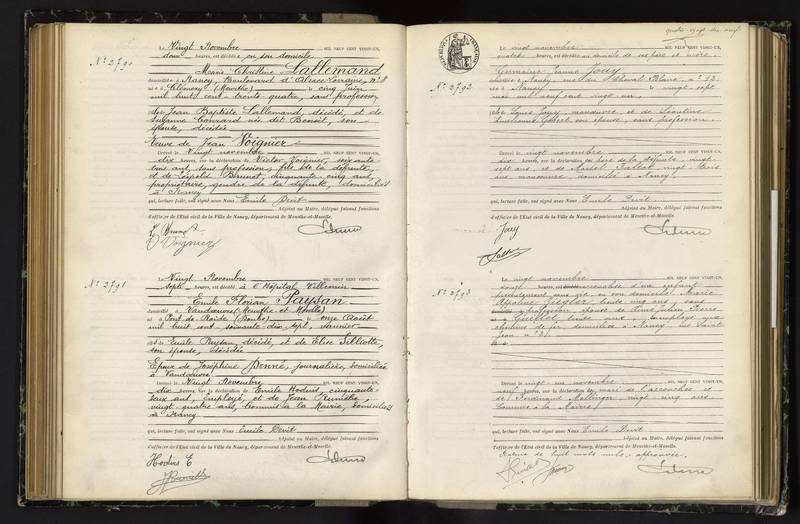 Nº 2790
Le Vingt Novembre MIL NEUF CENT VINGT-UN,
heures, est décédé en son domicile
Marie Christine Lallemand
domiciliée à Nancy, Boulevard d'Alsace-Lorraine, nº 8
née à Clémery (Meurthe) le cinq juin
mil huit cent trente quatre, sans profession,
de Jean Baptiste Lallemand, décédé, et de
Suzanne née dit Benoit, son
épouse, décédée
Veuve de Jean Voignier
Dressé le Vingt novembre MIL NEUF CENT VINGT-UN,
dix heures, sur la déclaration de Victor Voignier, soixante
ans, sans profession, fils de la défunte
et de Léopold Brunot, cinquante cinq ans,
propriétaire, gendre de la défunte, domiciliés
à Nancy
qui, lecture faite, ont signé avec Nous Emile Devit
Adjoint au Maire, délégué faisant fonctions
d'officier de l'Etat civil de la Ville de Nancy, département de Meurthe-et-Moselle.
Nº 2791
Le Vingt Novembre MIL NEUF CENT VINGT-UN,
sept heures, est décédé à l'Hôpital Villemin
Emile Florian Paysan
domicilié à Vandœuvre (Meurthe et Moselle)
né à Pont de Roide (Doubs) le onze Août
mil huit cent soixante dix sept, vannier
fils de Emile Paysan, décédé, et de Elise Silliotte,
son épouse, décédée
Epoux de Joséphine Benne, journalière, domiciliée
à Vandœuvre
Dressé le Vingt Novembre MIL NEUF CENT VINGT-UN,
dix heures, sur la déclaration de Emile Hodins, cinquante
deux ans, Employé, et de Jean
vingt quatre ans, Commis à la Mairie, domiciliés
à Nancy
qui, lecture faite, ont signé avec Nous Emile Devit
Adjoint au Maire, délégué faisant fonctions
d'officier de l'Etat civil de la Ville de Nancy, département de Meurthe-et-Moselle.
Hodins E
quatre-vingt dix neuf
Nº 2792
Le vingt novembre MIL NEUF CENT VINGT-UN,
quatre heures, est décédée au domicile de ses père et mère
Germaine Jeanne Jouy
domiciliée à Nancy rue du Cheval Blanc, nº 13
née à Nancy le vingt sept
mai mil neuf cent vingt un,
fille de Louis Jouy, manœuvre, et de Léontine
son épouse, sans profession
Dressé le vingt novembre MIL NEUF CENT VINGT-UN,
dix heures, sur la déclaration du père de la défunte, vingt
sept ans, et de Marcel vingt trois
ans manœuvre, domicilié à Nancy
qui, lecture faite, ont signé avec Nous Emile Devit
Adjoint au Maire, délégué faisant fonctions
d'officier de l'Etat civil de la Ville de Nancy, département de Meurthe-et-Moselle.
Jouy
Nº 2793
Le vingt novembre MIL NEUF CENT VINGT-UN,
douze heures, est accouchée d'un enfant
présentement sans vie, en son domicile, Marie
Apoline Ziegler, trente cinq ans, sans
profession, épouse de Pierre
trente ans, employé aux
chemins de fer, domiciliés à Nancy, rue Saint
Jean nº 21
Dressé le vingt un novembre MIL NEUF CENT VINGT-UN,
neuf heures, sur la déclaration du mari de l'accouchée et
de Ferdinand vingt cinq ans
Commis à la Mairie
qui, lecture faite, ont signé avec Nous Emile Devit
Adjoint au Maire, délégué faisant fonctions
d'officier de l'Etat civil de la Ville de Nancy, département de Meurthe-et-Moselle.
Rature de huit mots nuls. approuvée.